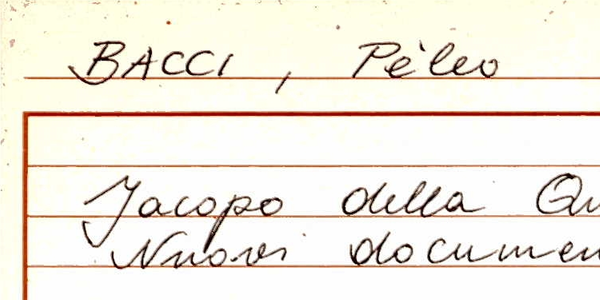 BACCI, Pèleo
Jacopo della Qu
Nuovi documen